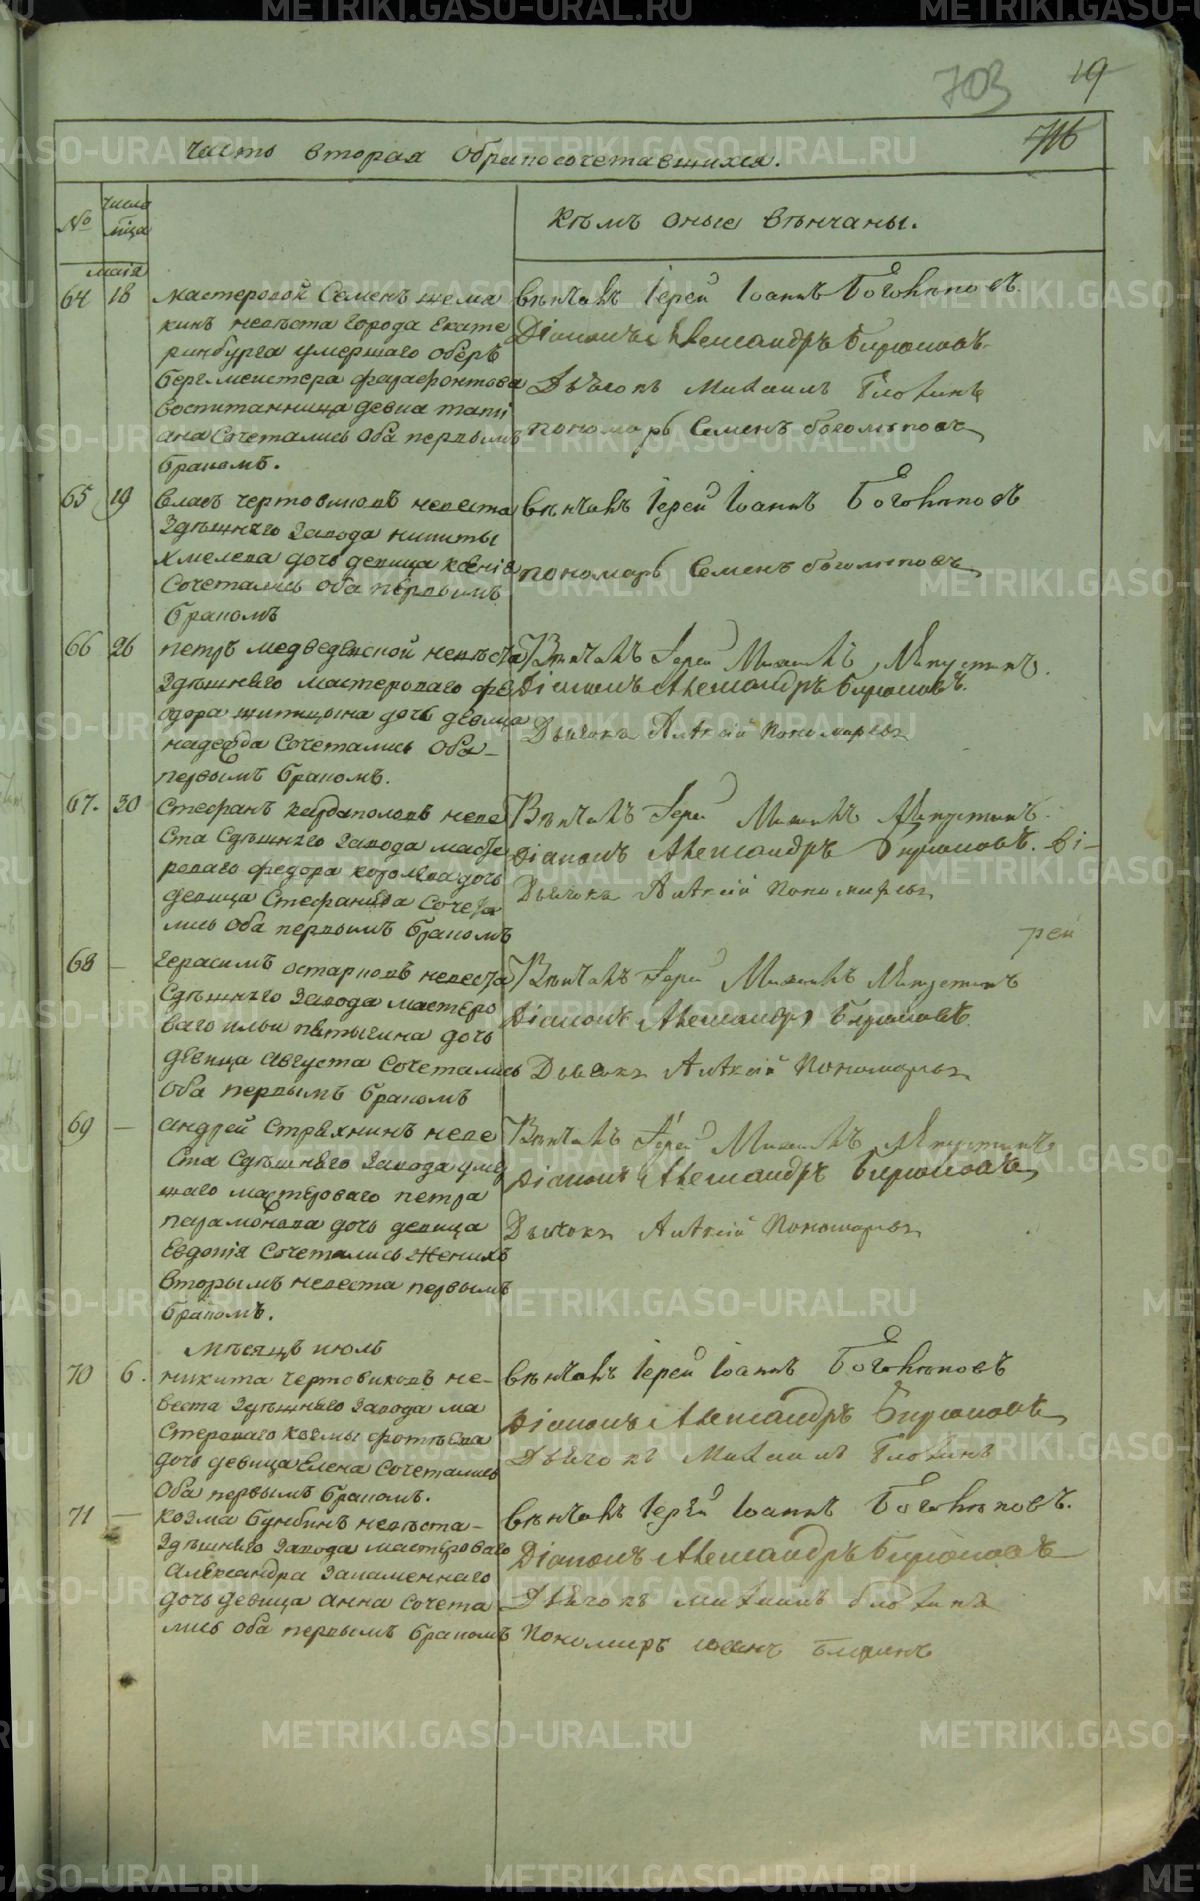 703 19
716
Часть вторая обракосочетавшихся.
№
Число
мца
Кѣмъ оные вѣнчаны.
маія
64 18 мастеровой Семенъ шема
кинъ невѣста города Екате
ринбурга умершаго оберъ
бергмеистера фарафонтова
воспитанница девка тати
ана Сочетались оба первымъ
бракомъ.
вѣнчалъ Іерей Іоаннъ Боголѣповъ
Діаконъ Александръ Бирюковъ
Дьячокъ Михаилъ
пономарь Семенъ боголѣповъ
65 19 Власъ чертовиковъ невеста
Здѣшняго Завода никиты
хмелева дочь девица ксенія
Сочетались оба первымъ
бракомъ
вѣнчалъ Іерей Іоаннъ Боголѣповъ
пономарь Семенъ боголѣповъ
66 26 петръ медведевской невѣста
Здѣшняго мастероваго фе
одора житицына дочь девица
надежда Сочетались оба
первымъ бракомъ.
Вѣнчалъ Іерей Михаилъ
Діаконъ Александръ Бирюковъ.
Дьячокъ Алѣксѣй Пономаревъ
67. 30 Стефанъ кардаполовъ неве
Ста Сдѣшняго Завода масте
роваго федора королева дочь
девица Стефанида Сочета
лись оба первымъ бракомъ
Вѣнчалъ Іерей Михаилъ
Діаконъ Александръ Бирюковъ. Ді-
Дьячокъ Алѣксѣй Пономаревъ
рей
68 — Герасимъ остарковъ невеста
Сдѣшняго Завода мастеро
ваго ильи пятыгина дочь
девица августа Сочетались
оба первымъ бракомъ
Вѣнчалъ Іерей Михаилъ
Діаконъ Александръ Бирюковъ.
Дьячокъ Алѣксѣй Пономаревъ
69 — андрей Стряхнинъ неве
Ста Сдѣшняго Завода умер
шаго мастероваго петра
парамонова дочь девица
Евдокія Сочетались Женихъ
вторымъ невеста первымъ
бракомъ.
Вѣнчалъ Іерей Михаилъ
Діаконъ Александръ Бирюковъ
Дьячокъ Алѣксѣй Пономаревъ
Мѣсяцъ июль
70 6. никита чертовиковъ не-
веста Здѣшняго Завода ма
Стероваго козмы фотѣева
дочь девица Елена Сочетались
оба первымъ бракомъ.
вѣнчалъ Іерей Іоаннъ Боголѣповъ
Діаконъ Александръ Бирюковъ
Дьячокъ Михаилъ
71 — козма бумбинъ невѣста-
Здѣшняго Завода мастероваго
Александра Закаменнаго
дочь девица анна Сочета
лись оба первымъ бракомъ
вѣнчалъ Іерей Іоаннъ Боголѣповъ.
Діаконъ Александръ Бирюковъ
Дьячокъ Михаилъ
Пономарь
METRIKI.GASO-URAL.RU